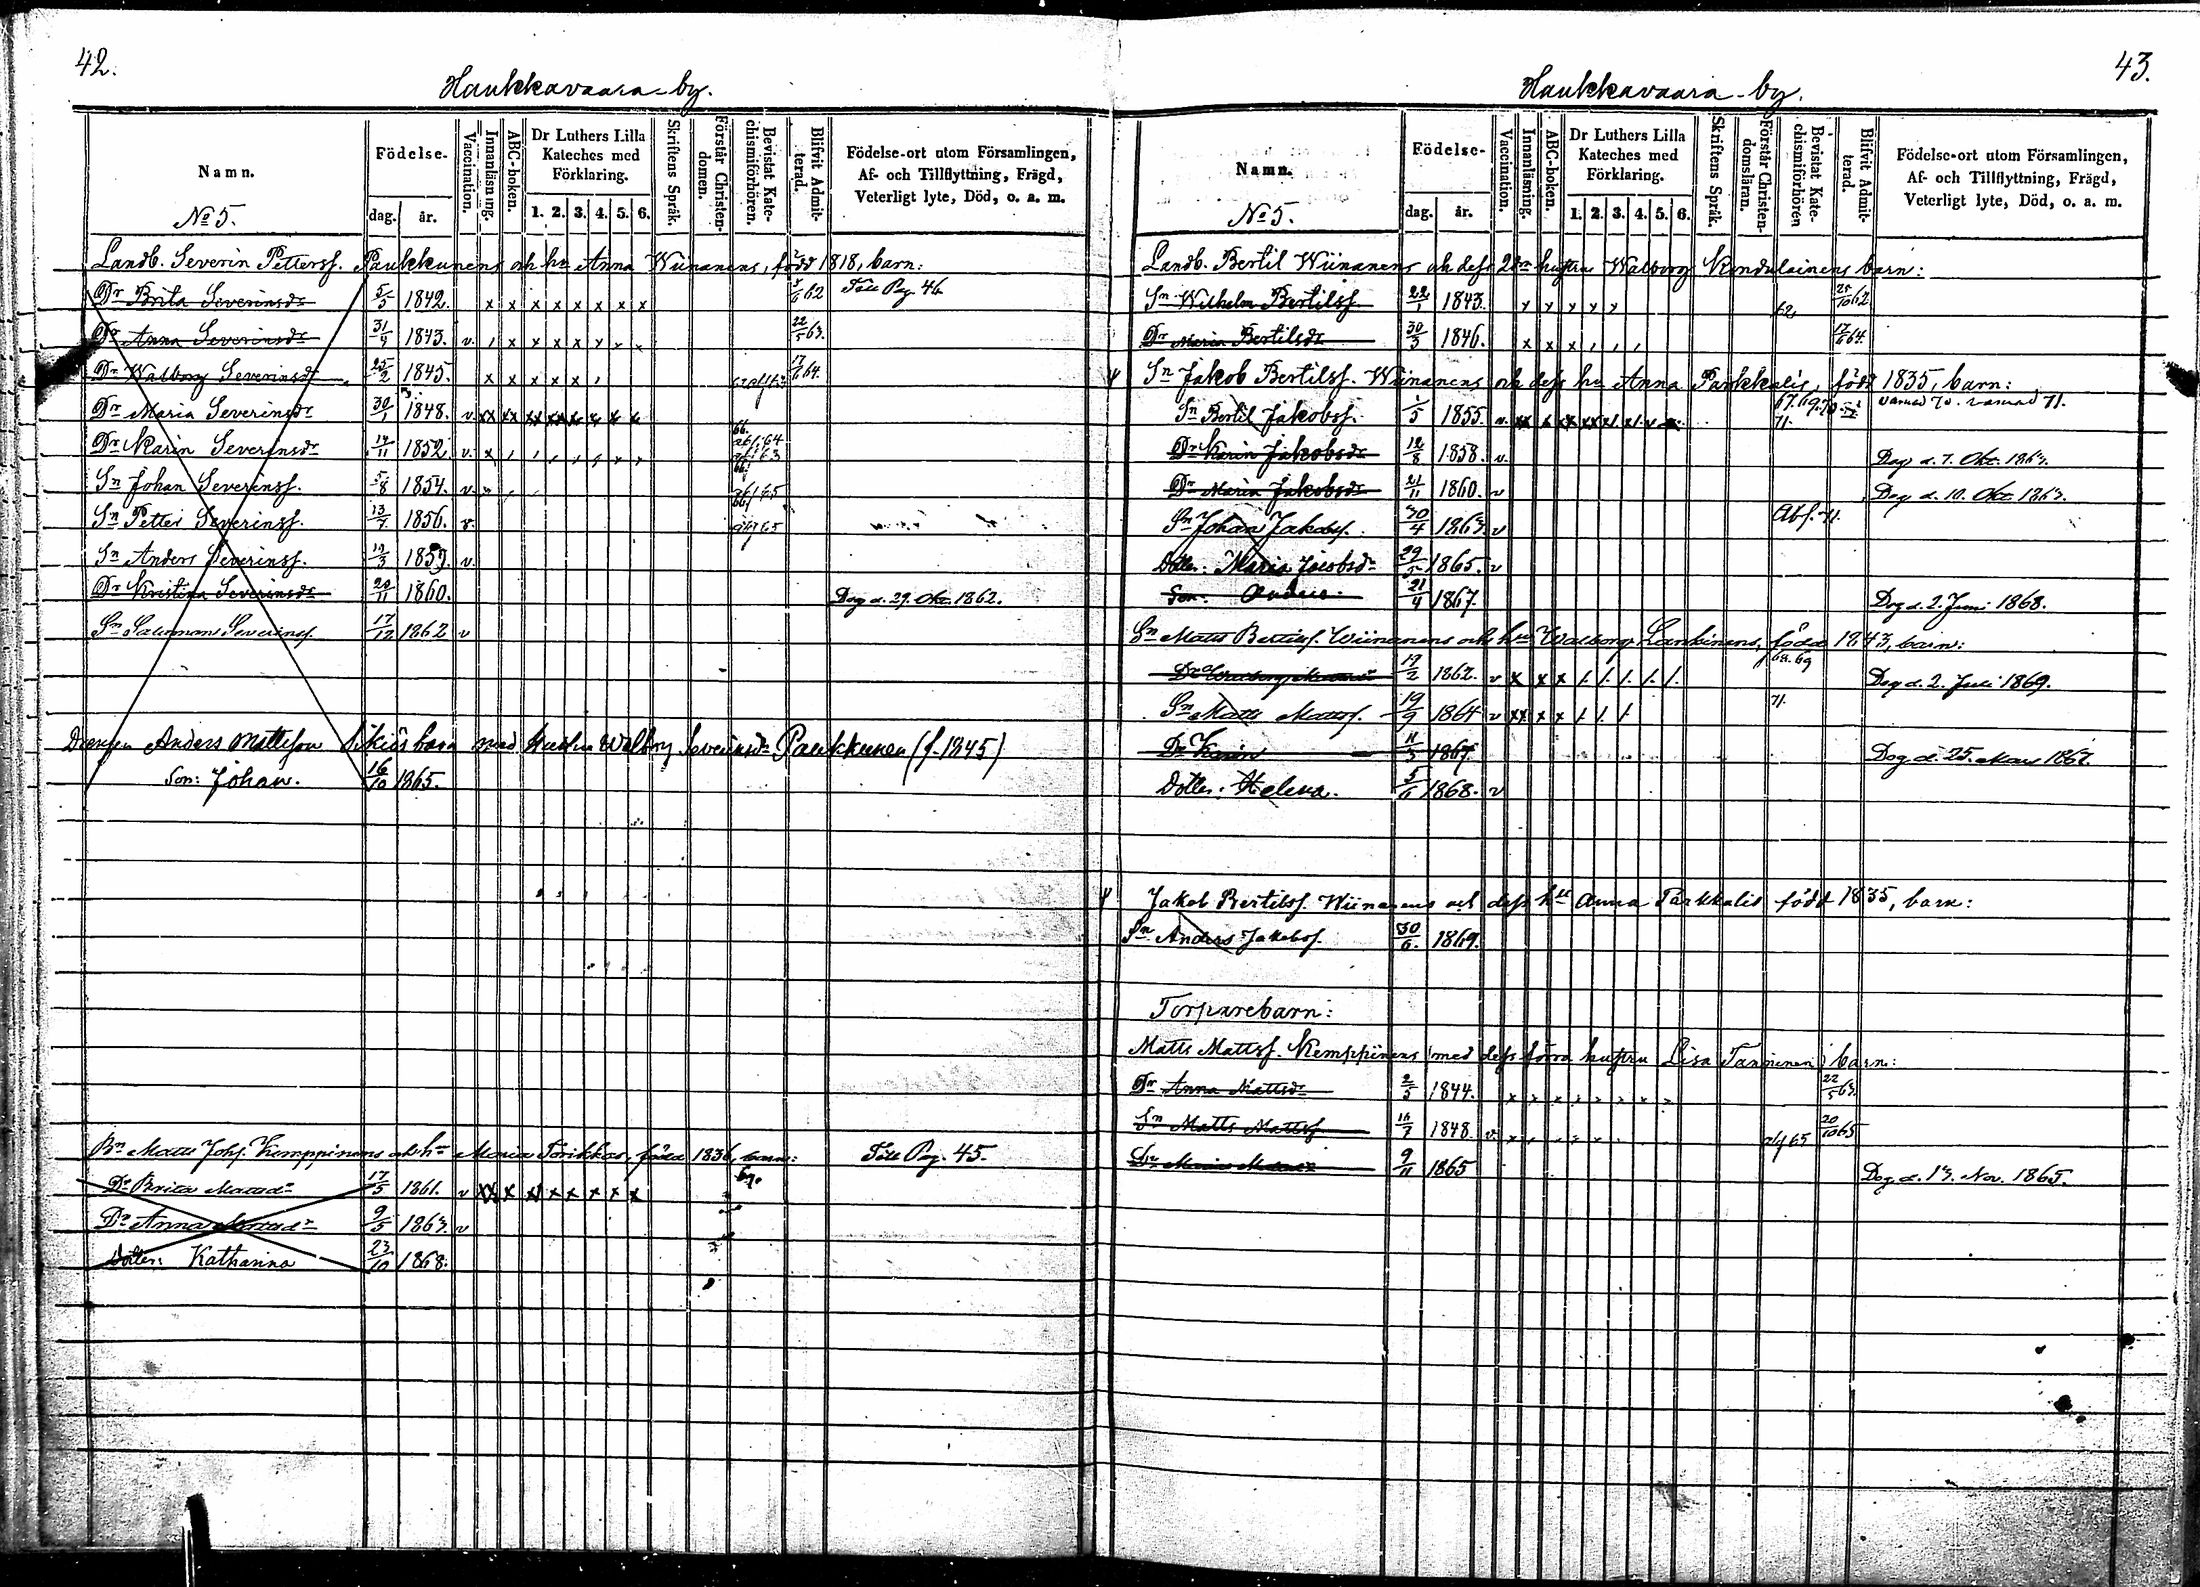 42.
Haukkavaara-by.
Namn.
No 5.
Födelse-
dag. år.
Vaccination.
Innanläsning.
ABC-boken.
Dr Luthers Lilla
Kateches med
Förklaring.
1. 2. 3. 4. 5. 6.
Skriftens Språk.
Förstår Christen-
domen.
Bevistat Kate-
chismiförhören.
Blifvit Admit-
terad.
Födelse-ort utom Församlingen,
Af- och Tillflyttning, Frägd,
Veterligt lyte, Död, o. a. m.
Landb. Severin Petterss. Paukkunens och hu Anna Wiinanens, född 1818, barn:
Dr Brita Severinsdr 5/5 1842. x x x x x x x x 62 Till Pag. 46
Dr Anna Severinsdr 31/4 1843. v. 22/5 63.
Dr Walborg Severinsdr 25/2 1845. x x x x x 17/6 64.
Dr Maria Severinsdr 30/1 1848. v
Dr Karin Severinsdr 14/11 1852. v.
Sn Johan Severinss. 5/8 1854. v.
Sn Petter Severinss. 13/7 1856. v.
Sn Anders Severinss. 1859. v.
Dr Kristina Severinsdr 1860. Dog d. 29. Okt. 1862.
Sn Salomon Severinss. 17/12 1862 v
Drengen Anders Mattsson barn med hustru Walborg Severinsdr Paukkunen (f. 1845)
Son: Johan. 16/10 1865.
Bn Matts Johs. Kemppinens och hr Maria Torikkas, född 1836, barn: Till Pag. 45.
Dr Brita Mattsdr 17/5 1861. v 69.
Dr Anna Mattsdr 9/5 1863. v
Dotter: Katharina 23/10 1868.
43.
Haukkavaara-by.
Namn.
No 5.
Födelse-
dag. år.
Vaccination.
Innanläsning.
ABC-boken.
Dr Luthers Lilla
Kateches med
Förklaring.
1. 2. 3. 4. 5. 6.
Skriftens Språk.
Förstår Christen-
domsläran.
Bevistat Kate-
chismiförhören
Blifvit Admit-
terad.
Födelse-ort utom Församlingen,
Af- och Tillflyttning, Frägd,
Veterligt lyte, Död, o. a. m.
Landb. Bertil Wiinanens och dess 2dra hustrus Walborg barn:
Sn Wilhelm Bertilss. 22/1 1843. 62
Dr Maria Bertilsdr 30/3 1846. 17/6 64.
Sn Jakob Bertilss. Wiinanens och dess hu Anna Parkkalis, född 1835, barn:
Sn Bertil Jakobss. 1/5 1855. v. 67. 69. 70 71.
Dr Karin Jakobsdr 12/8 1858. v. Dog d. 7. Okt. 1863.
Dr Maria Jakobsdr 21/11 1860. v Dog d. 10. Okt. 1863.
Sn Johan Jakobss. 30/4 1863. v Abs. 71.
Dotter: Maria Jacobsdr 29/5 1865. v
Son: Anders 21/4 1867. Dog d. 2. Juni 1868.
Sn Matts Bertilss. Wiinanens och hu Walborg Lankinens, född 1843, barn:
1862. v 68. 69 Dog d. 2. Juli 1869.
Sn Matts Mattss. 19/9 1864 v 71.
Dr Karin 11/3 1867. Dog d. 25. Mars 1867.
Dotter: Helena. 5/6 1868. v
Jakob Bertilss. Wiinanens och dess hu Anna Parkkalis född 1835, barn:
Sn Anders Jakobss. 30/6. 1869.
Torparebarn:
Matts Mattss. Kemppinens med dess förra hustru Lisa Tanninen barn:
Dr Anna Mattsdr 2/5 1844. 22/5 63.
Sn Matts Mattss. 16/7 1848. v. 65 20/10 65
Dr Maria 9/11 1865 Dog d. 13. Nov. 1865.